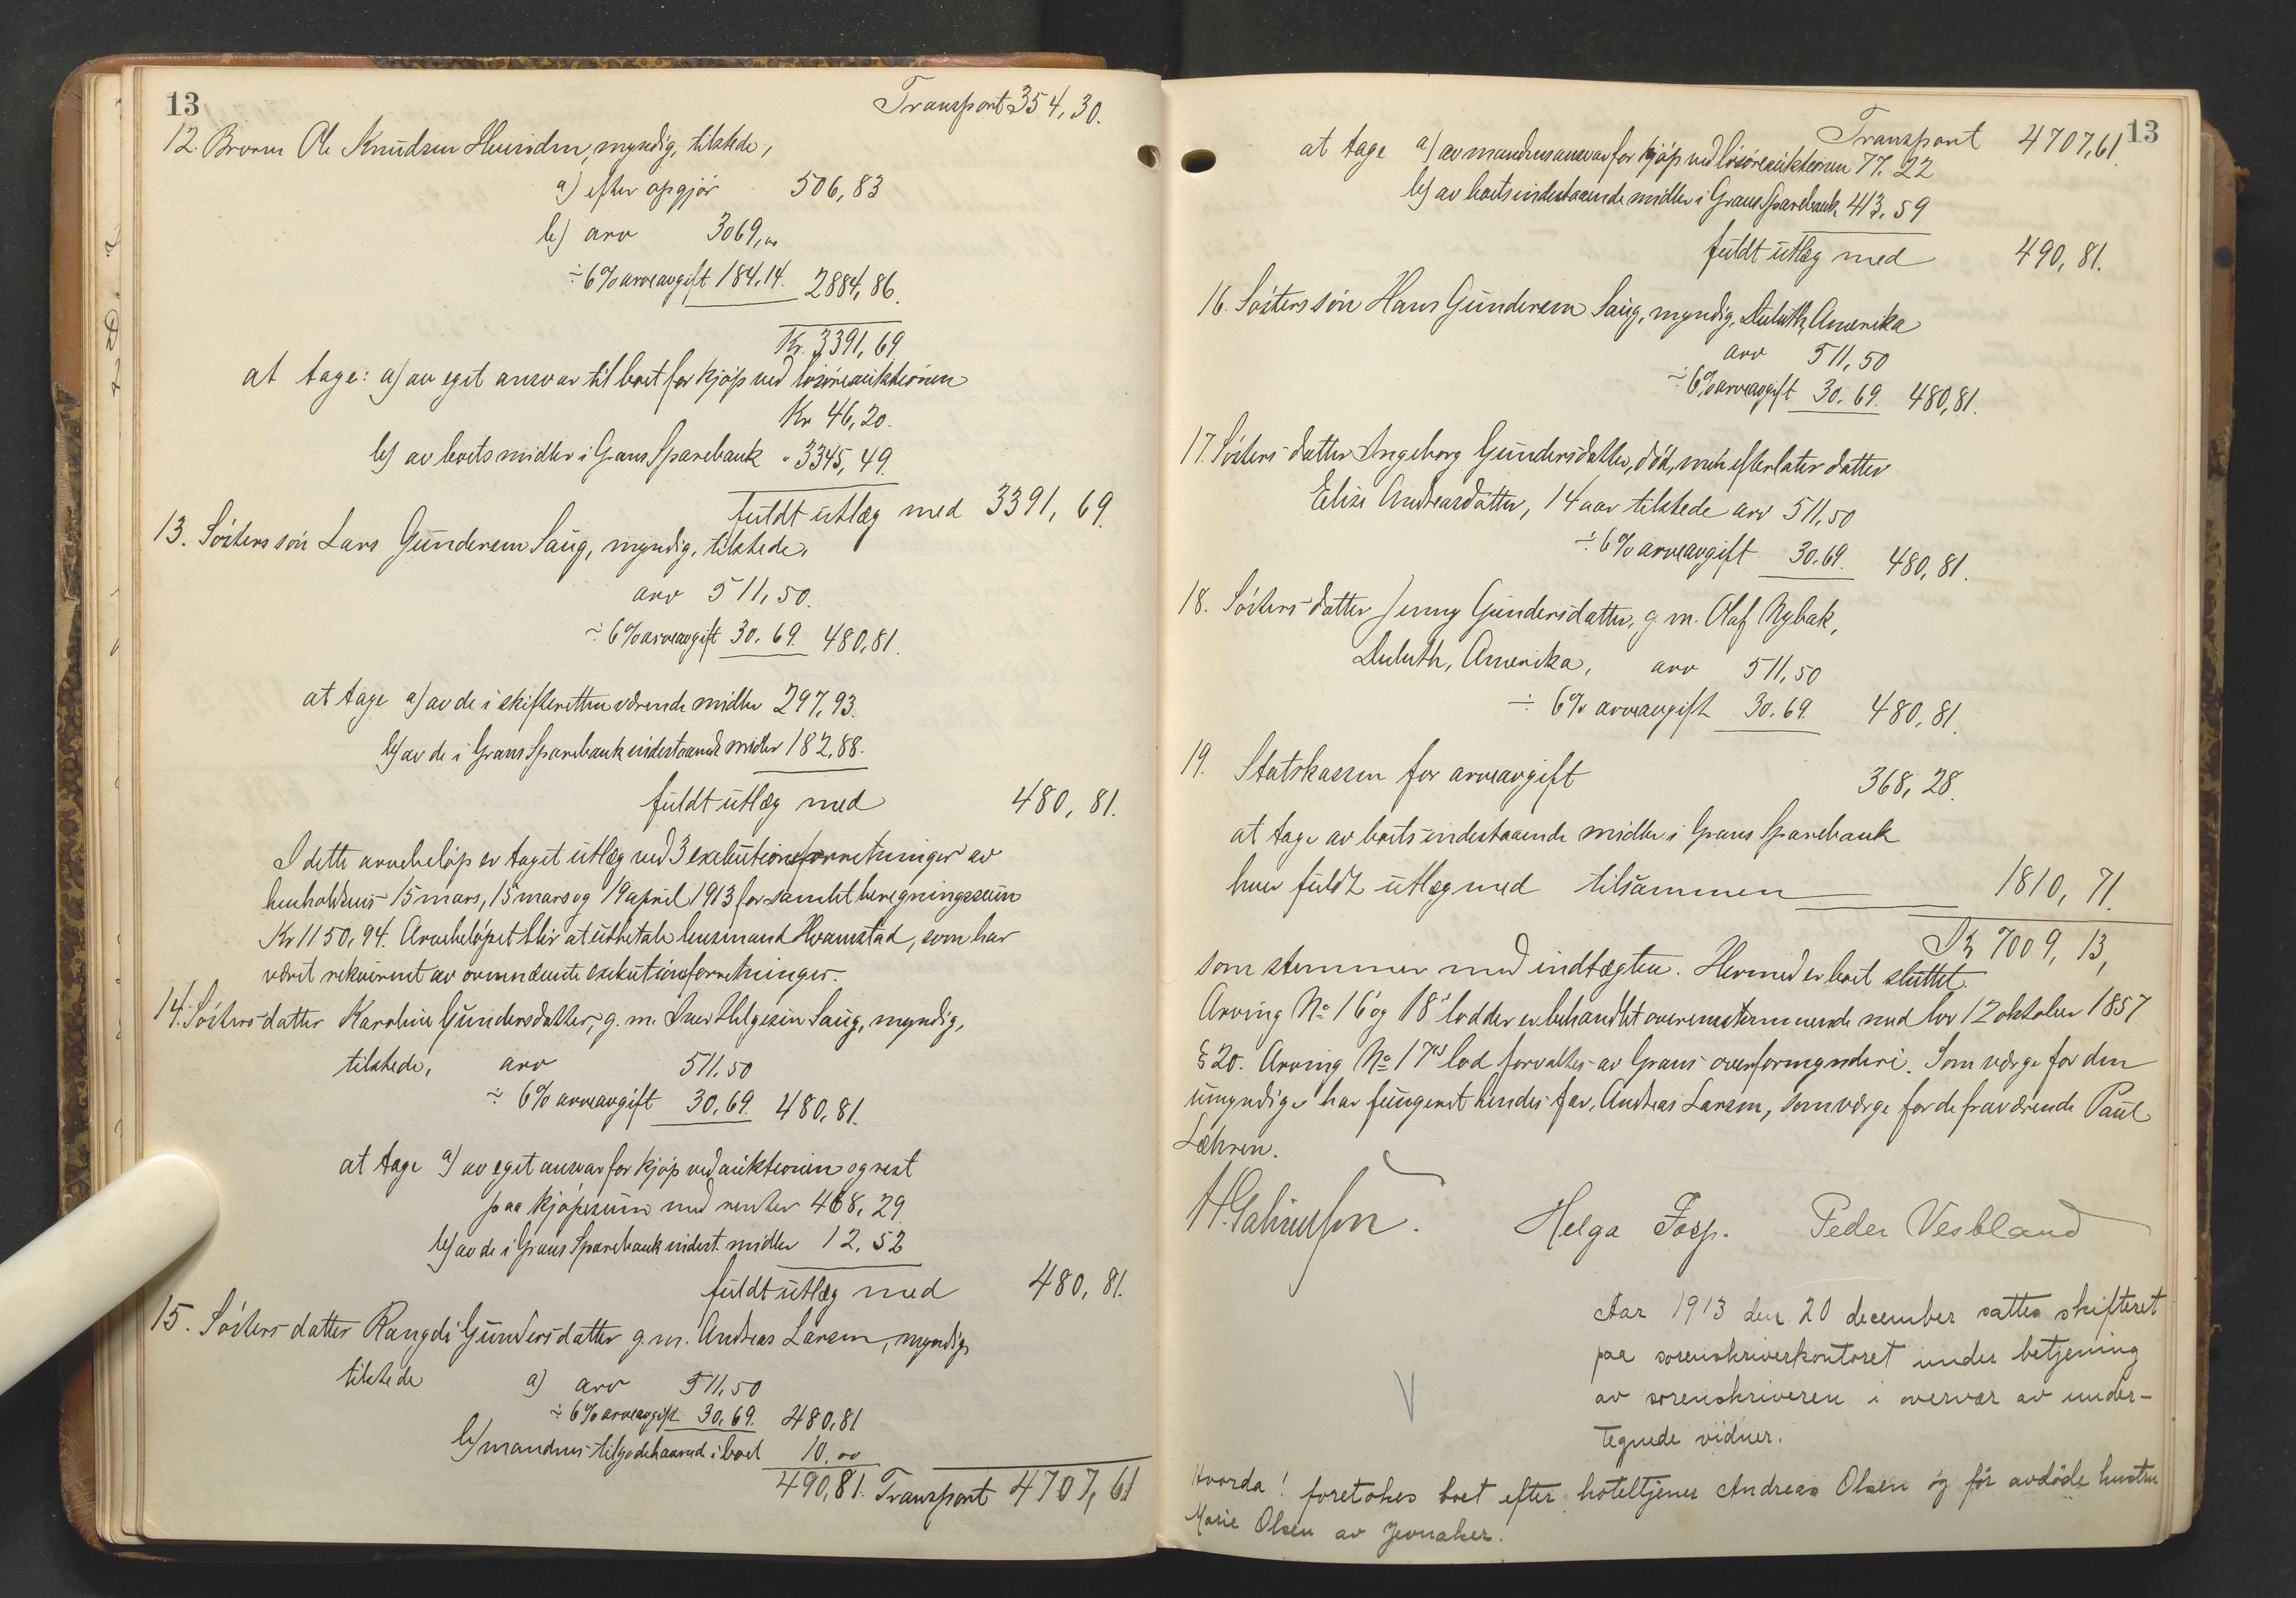 13
Transport 354,30.
12. Broren Ole Knudsen myndig, tilstede,
a) efter opgjør 506,83
b) arv 3069,00
÷ 6% arveavgift 184,14. 2884,86.
Kr. 3391,69
at tage: a) av eget ansvar til boet for kjøp ved løsøreauktionen
Kr 46,20.
b) av boets midler i Grans Sparebank " 3345,49.
fuldt utlæg med 3391,69.
13. Søsters søn Lars Gundersen Saug, myndig, tilstede,
arv 511,50.
÷ 6% arveavgift 30,69. 480,81.
at tage a) av de i skifteretten værende midler 297,93.
b) av de i Grans Sparebank indestaaende midler 182,88.
fuldt utlæg med 480,81.
I dette arvebeløp er taget utlæg ved 3 exekutionsforretninger av
henholdsvis 15 mars, 15 mars og 19 april 1913 for samlet beregningssum
Kr 1150,94. Arvebeløpet blir at utbetale lensmand Hvamstad, som har
været rekvirent av ovennævnte exekutionsforretninger.
14. Søsters datter Karoline Gundersdatter, g. m. Iver Helgesen Saug, myndig,
tilstede, arv 511,50
÷ 6% arveavgift 30,69. 480,81.
at tage a) av eget ansvar for kjøp ved auktionen og rest
paa kjøpesum med renter 468,29
b) av de i Grans Sparebank indest. midler 12,52
fuldt utlæg med 480,81.
15. Søsters datter Rangdi Gundersdatter g. m. Andreas Larsen, myndig,
tilstede a) arv 511,50
÷ 6% arveavgift 30,69. 480,81
b) mandens tilgodehavend i boet 10,00
490,81. Transport 4707,61
13
Transport 4707,61
at tage a) av mandens ansvar for kjøp ved løsøreauktionen 77,22
b) av boets indestaaende midler i Grans Sparebank 413,59
fuldt utlæg med 490,81.
16. Søsters søn Hans Gundersen Saug, myndig, Duluth, Amerika
arv 511,50
÷ 6% arveavgift 30,69. 480,81.
17. Søsters datter Ingeborg Gundersdatter, død, men efterlater datter
Elise Andreasdatter, 14 aar tilstede arv 511,50
÷ 6% arveavgift 30,69. 480,81.
18. Søsters datter Jenny Gundersdatter, g. m. Olaf Nybak,
Duluth, Amerika, arv 511,50
÷ 6% arveavgift 30,69. 480,81.
19. Statskassen for arveavgift 368,28.
at tage av boets indestaaende midler i Grans Sparebank
hver fuldt utlæg med tilsammen 1810,71.
7009,13,
som stemmer med indtægten. Hermed er boet sluttet.
Arving No 16 og 18s lodder er behandlet overensstemmende med lov 12 oktober 1857
§ 20. Arving No 17s lod forvaltes av Grans overformynderi. Som verge for den
umyndige har fungeret hendes far, Andreas Larsen, som verge for de fraværende Paul
Læhren.
Helga Peder Vestland
Aar 1913 den 20 december sattes skifteret
paa sorenskriverkontoret under betjening
av sorenskriveren i overvær av under-
tegnede vidner.
Hvorda! foretokes boet efter hoteltjener Andreas Olsen og før avdøde hustru
Marie Olsen av Jevnaker.